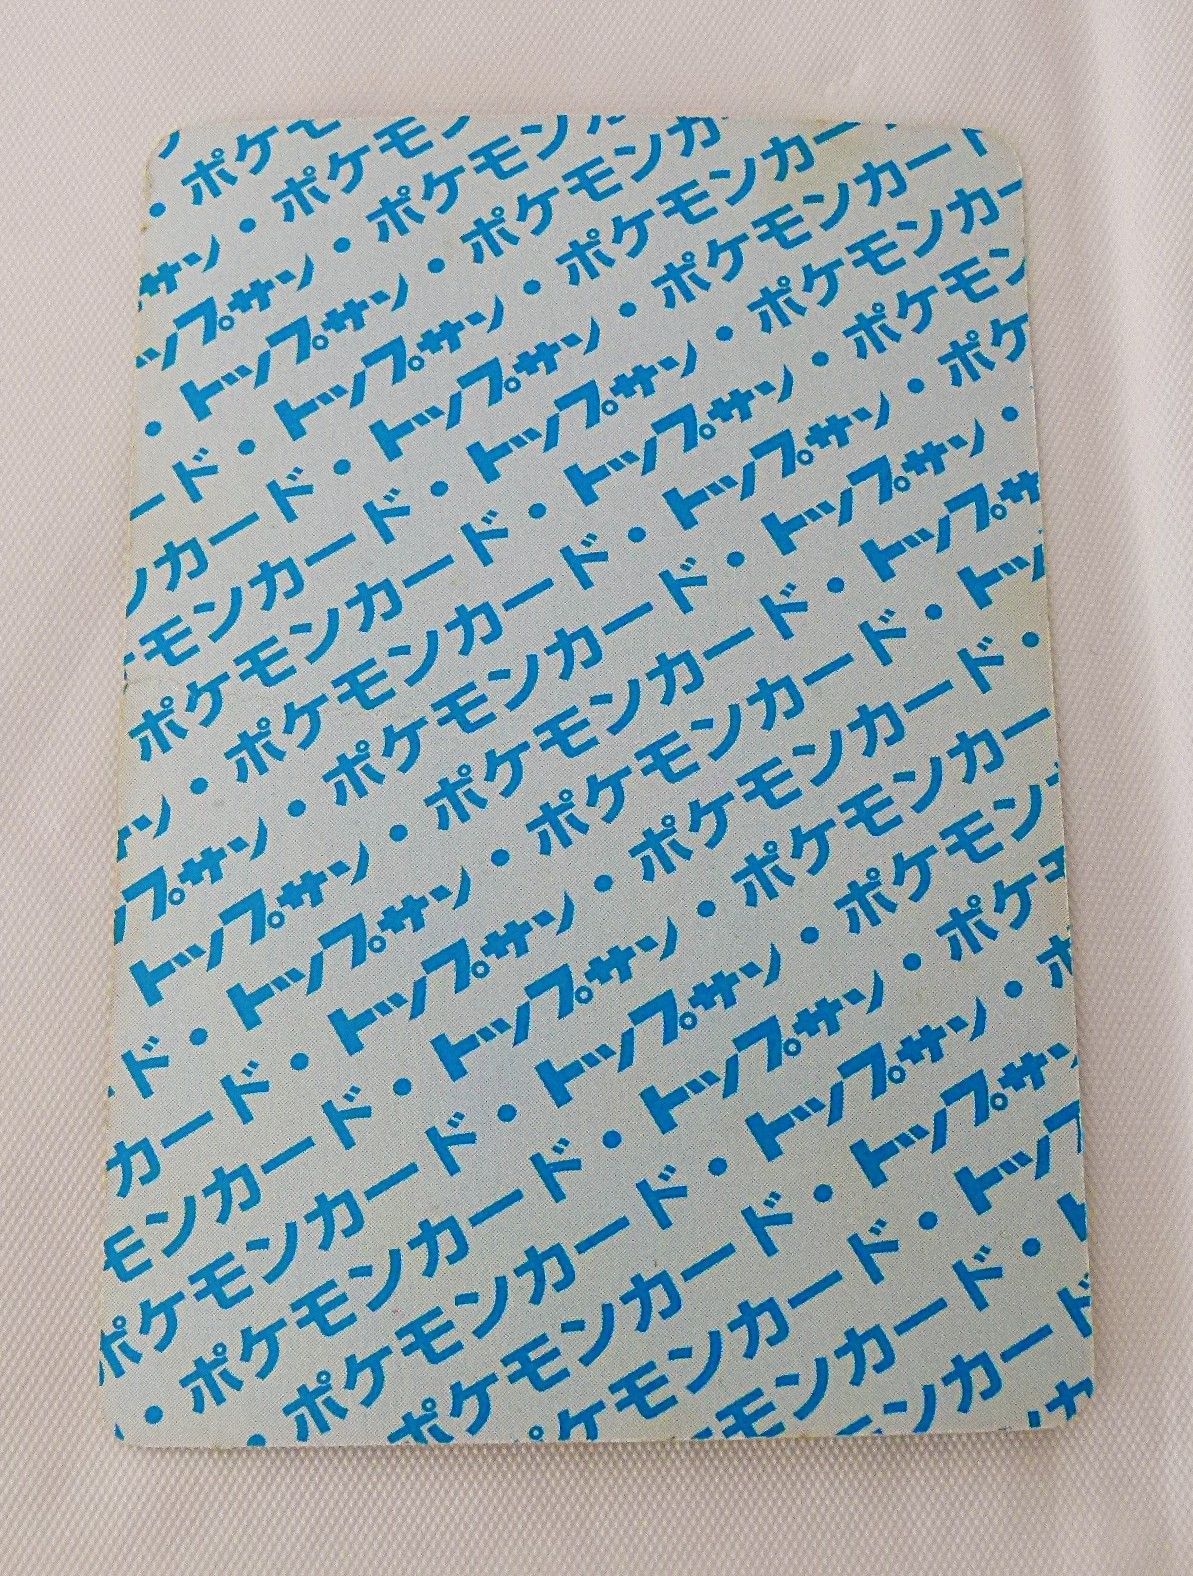 ・ポケモ
サン・ポケモン
ップサン・ポケモンカ
・トップサン・ポケモンカ
ード・トップサン・ポケモンカー
ンカード・トップサン・ポケモンカード
モンカード・トップサン・ポケモンカー
ポケモンカード・トップサン・ポケモン
ン・ポケモンカード・トップサン・ポケ
プサン・ポケモンカード・トップサン・
トップサン・ポケモンカード・トップサ
ド・トップサン・ポケモンカード・トッ
カード・トップサン・ポケモンカード・
モンカード・トップサン・ポケモンカー
ポケモンカード・トップサン・ポケモン
・ポケモンカード・トップサン・ポケモ
・ポケモンカード・トップサン・ポ
ポケモンカード・トップサン
ケモンカード・トップ
モンカード・ト
ンカード